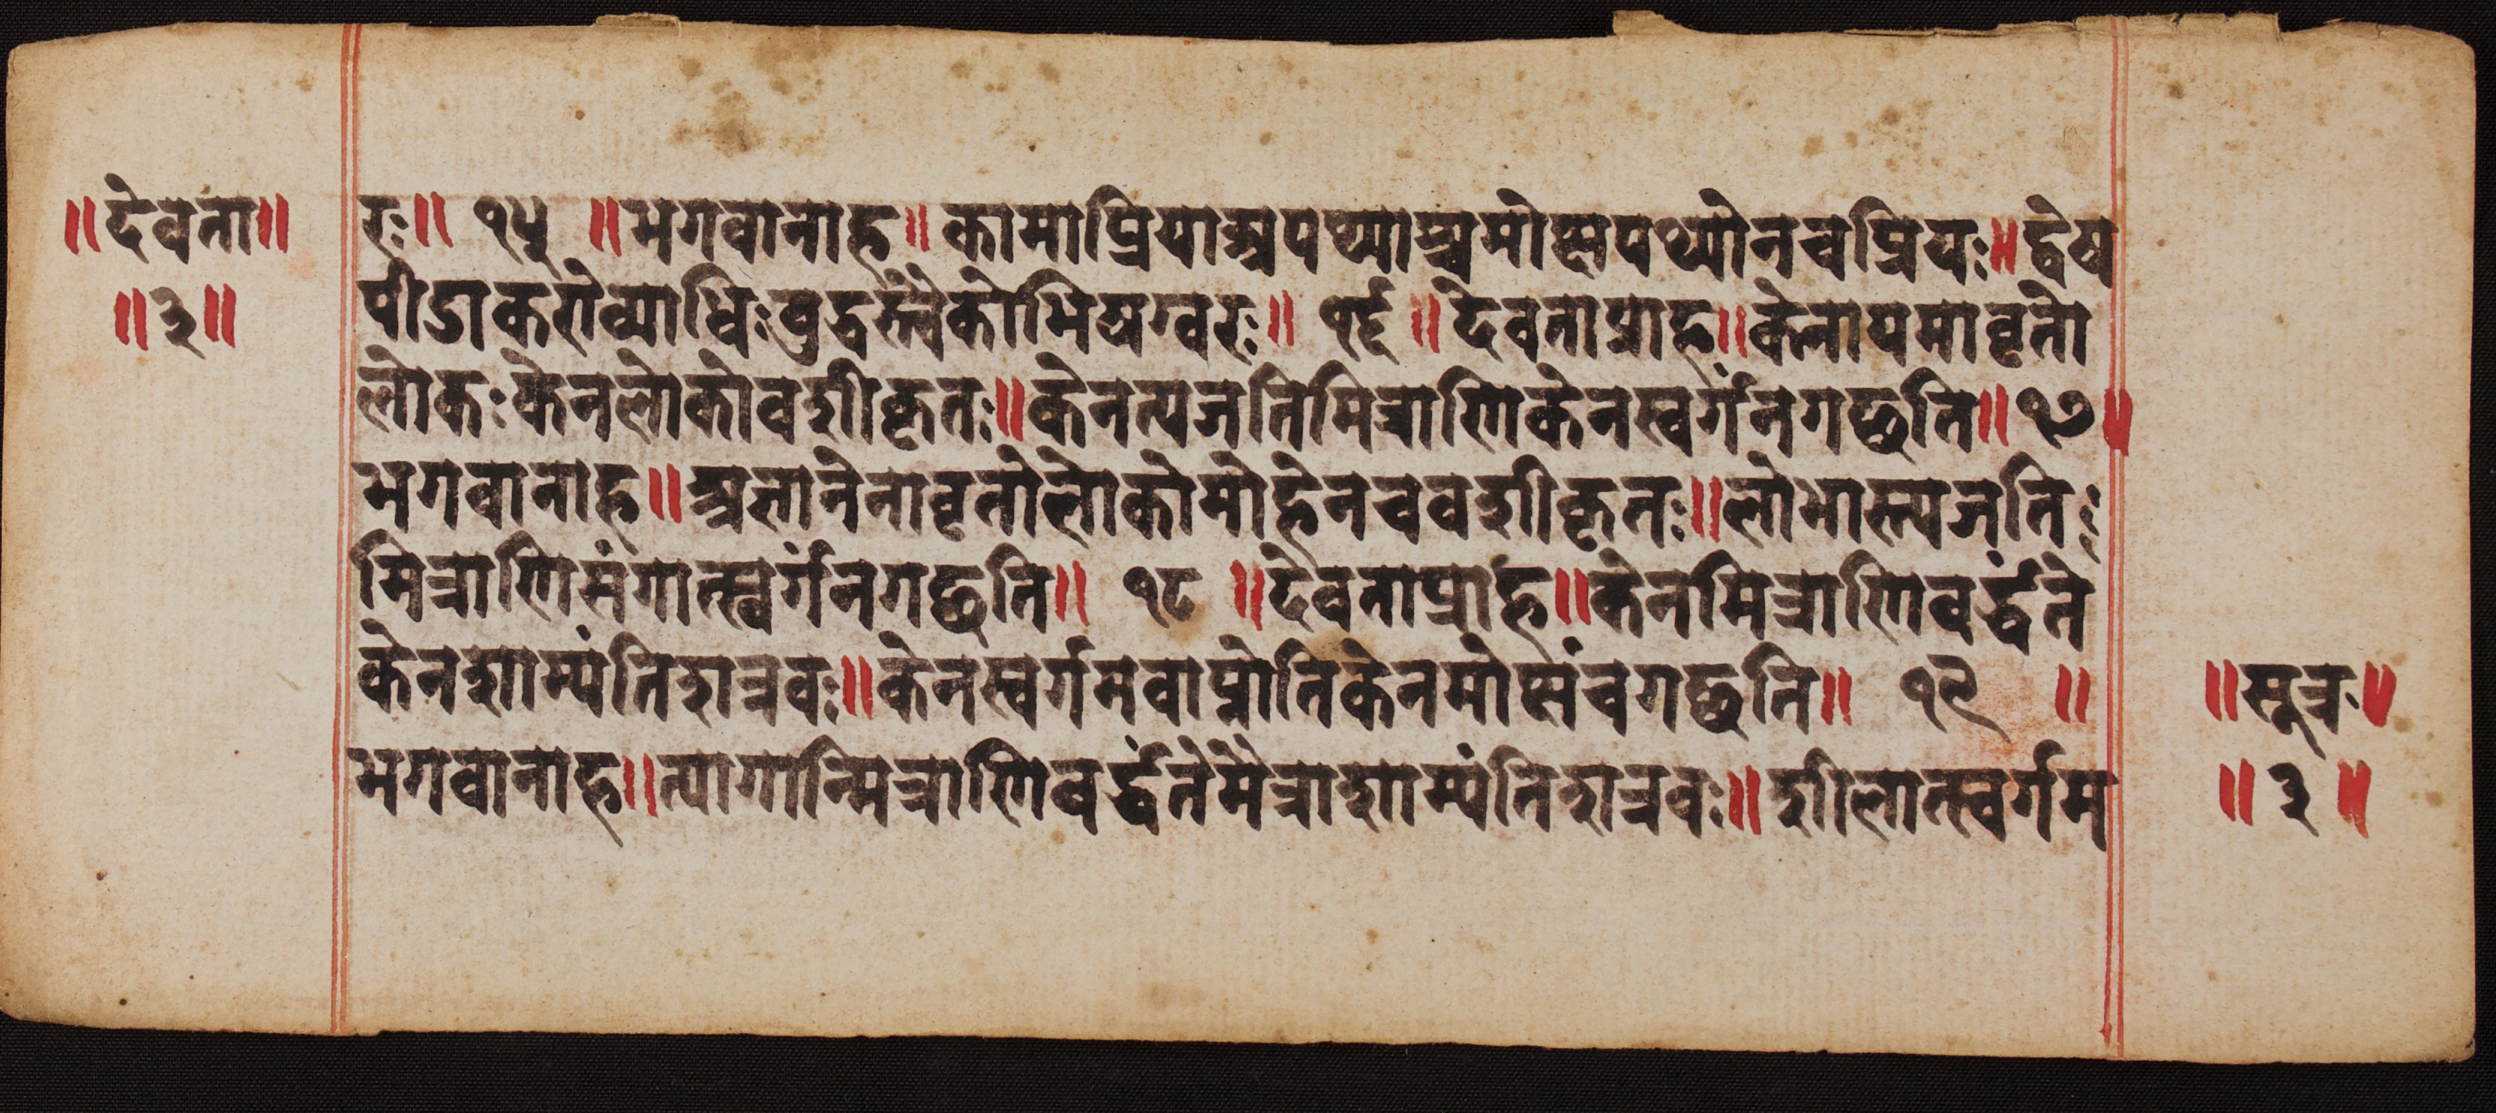 ॥देवता॥
॥३॥
रः॥ १५ ॥भगवानाह॥कामाप्रियाश्चपथ्याश्चमोक्षपथ्योनचप्रियः॥द्वेष
पीडाकरोव्याधिःबुद्धस्त्वैकोभिषग्वरः॥ १६ ॥देवताप्राह॥केनायमावृतो
लोकःकेनलोकोवशीकृतः॥केनत्यजतिमित्राणिकेनस्वर्गंनगछति॥१७॥
भगवानाह॥अज्ञानेनावृतोलोकोमोहेनचवशीकृतः॥लोभात्त्यजति
मित्राणिसंगात्स्वर्गंनगछति॥ १८ ॥देवताप्राह॥केनमित्राणिवर्द्धंते
केनशाम्यंतिशत्रवः॥केनस्वर्गमवाप्नोतिकेनमोक्षंचगछति॥ १९ ॥
भगवानाह॥त्यागान्मित्राणिवर्द्धंतेमैत्राशाम्यंतिशत्रवः॥शीलात्स्वर्गम
॥सूत्रः॥
॥३॥